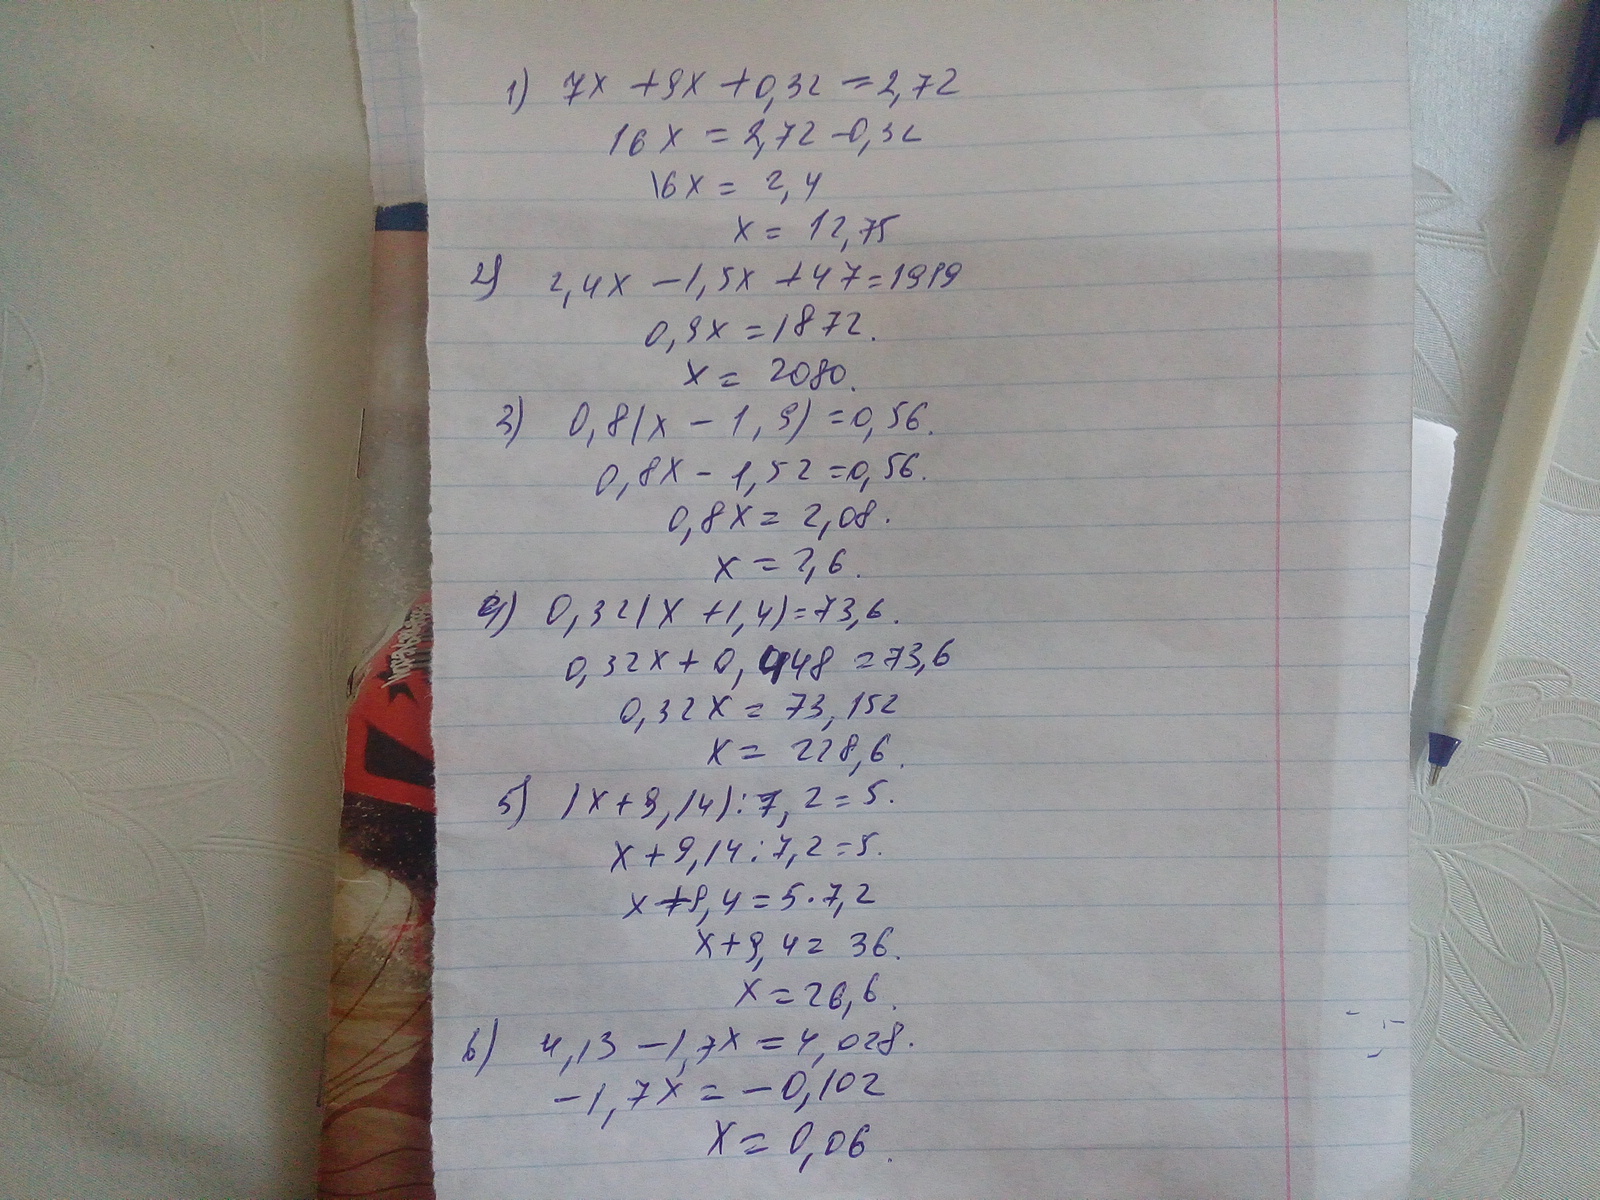 1) 7x + 9x + 0,32 = 2,72
16x = 2,72 - 0,32
16x = 2,4
x = 12,75
2) 2,4x - 1,5x + 47 = 1919
0,9x = 1872.
x = 2080.
3) 0,8(x - 1,9) = 0,56.
0,8x - 1,52 = 0,56.
0,8x = 2,08.
x = 2,6.
4) 0,32(x + 1,4) = 73,6.
0,32x + 0,448 = 73,6
0,32x = 73,152
x = 228,6.
5) (x + 9,14) : 7,2 = 5.
x + 9,14 : 7,2 = 5.
x + 9,4 = 5 · 7,2
x + 9,4 = 36.
x = 26,6.
6) 4,13 - 1,7x = 4,028.
-1,7x = -0,102
x = 0,06.